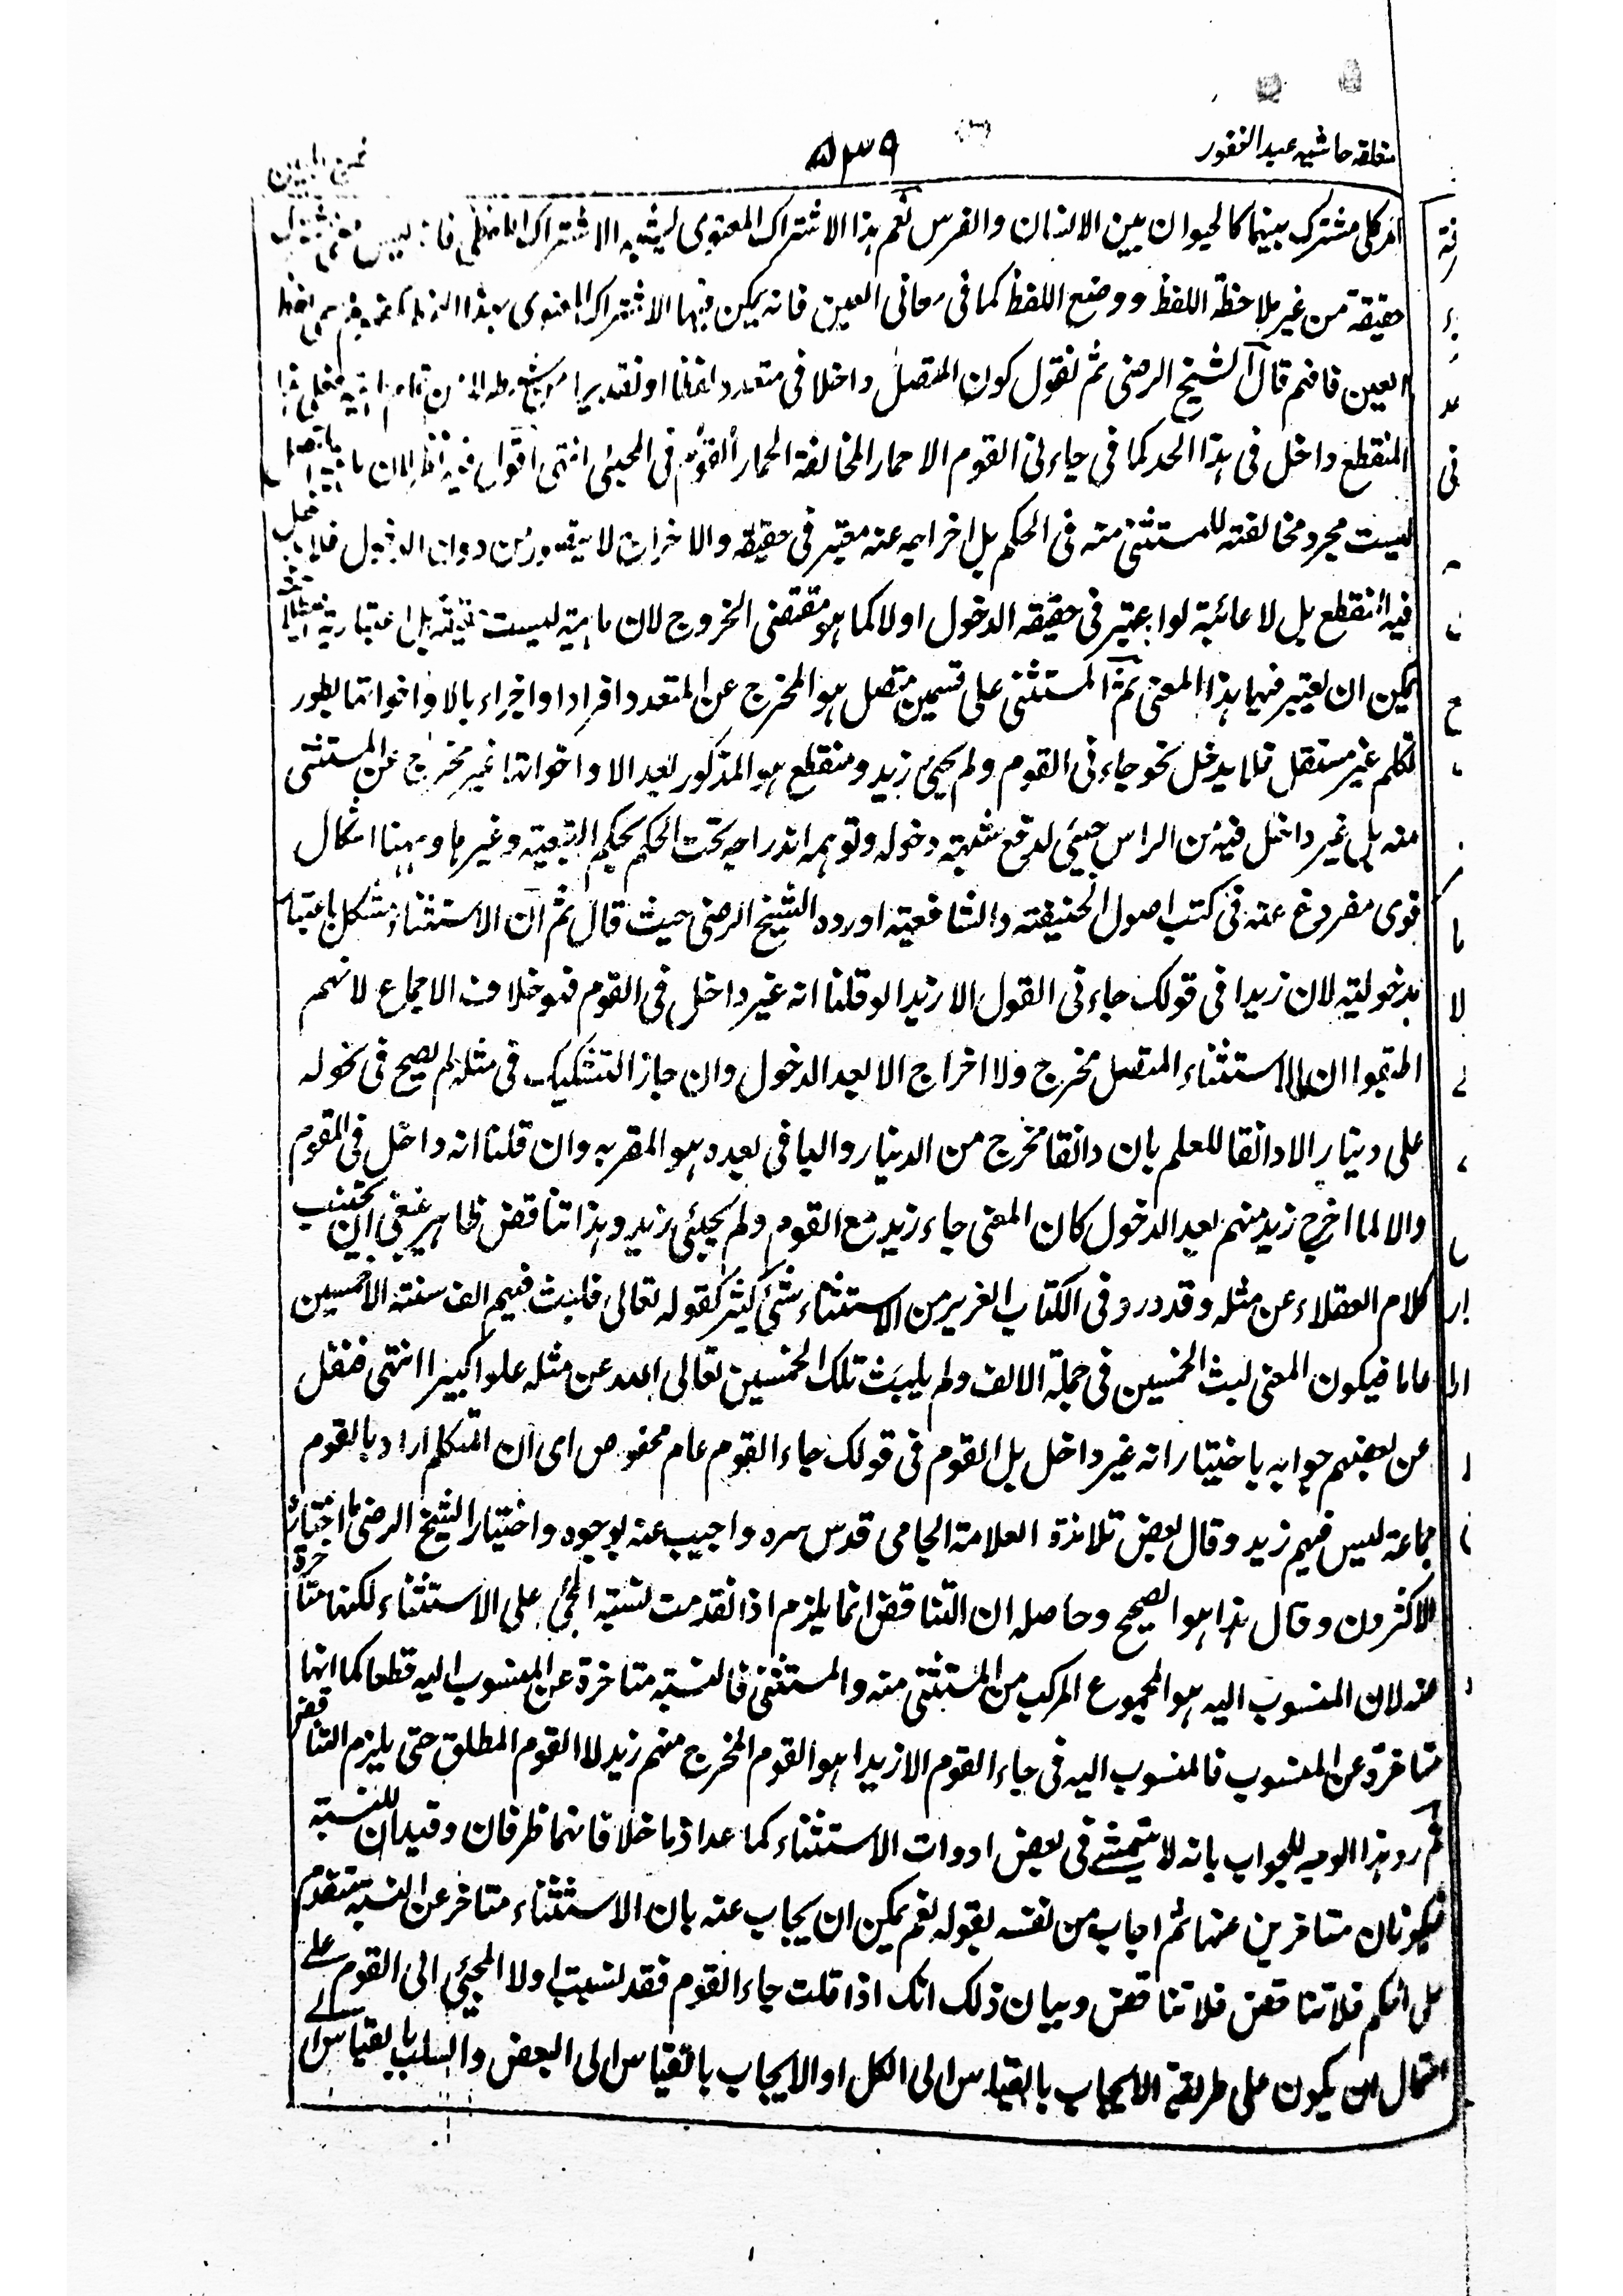 متعلقہ حاشیہ عبد الغفور
۵۳۹
امر کلی مشترک بینہما کالحیوان بین الانسان والفرس نعم ہذا الاشتراک المعنوی یشبہ الاشتراک اللفظی فانہ لیس
حقیقۃ من غیر ملاحظۃ اللفظ ووضع اللفظ کما فی معانی العین فانہ یمکن فیہا الاشتراک المعنوی بہذا
العین فافہم قال الشیخ الرضی ثم نقول کون المتصل داخلا فی متعدد لفظا او تقدیرا من شرطہ لا من تمام ماہیتہ فعلی ہذا
المنقطع داخل فی ہذا الحد کما فی جاءنی القوم الا حمار المخالفۃ الحمار القوم فی المجیئی انتہی اقول فیہ نظر لان ماہیۃ المتصل
لیست مجرد مخالفتہ للمستثنی منہ فی الحکم بل اخراجہ عنہ معتبر فی حقیقتہ والاخراج لا یتصور من دون الدخول فلا یدخل
فیہ المنقطع بل لا عائبۃ لو اعتبر فی حقیقۃ الدخول اولا کما ہو مقتضی الخروج لان ماہیتہ لیست حقیقتہ بل اعتباریۃ
یمکن ان یعتبر فیہا ہذا المعنی ثم المستثنی علی قسمین متصل ہو المخرج عن المتعدد افرادا واجزاء بالا واخواتہا بطور
تکلم غیر مستقل قلما یدخل نحو جاءنی القوم ولم یجیٔ زید ومنقطع ہو المذکور بعد الا واخواتہا غیر مخرج عن المستثنی
منہ بل غیر داخل فیہ من الراس جیئی لدفع شبہۃ دخولہ وتوہم اندراجہ تحت الحکم بحکم التبعیۃ وغیرہا وہہنا اشکال
قوی مفروغ عنہ فی کتب اصول الحنیفۃ والشافعیۃ اوردہ الشیخ الرضی حیث قال ثم ان الاستثناء مشکل باعتبار
مدخولیتہ لان زیدا فی قولک جاءنی القول الا زیدا لو قلنا انہ غیر داخل فی القوم فہو خلاف الاجماع لانہم
اطبقوا ان الاستثناء المتصل مخرج ولا اخراج الا بعد الدخول وان جاز التشکیک فی مثلہ لم یصح فی نحو لہ
علی دینار الا دانقا للعلم بان دانقا مخرج من الدینار والباقی بعدہ ہو المقر بہ وان قلنا انہ داخل فی القوم
والا لما اخرج زید منہم بعد الدخول کان المعنی جاء زید مع القوم ولم یجیئی زید وہذا تناقض ظاہر ینبغی ان یجتنب
کلام العقلاء عن مثلہ وقد ورد فی الکتاب العزیز من الاستثناء شیٔ کثیر کقولہ تعالی فلبث فیہم الف سنۃ الا خمسین
عاما فیکون المعنی لبث الخمسین فی جملۃ الالف ولم یلبث تلک الخمسین تعالی اللہ عن مثلہ علوا کبیرا انتہی فنقل
عن بعضہم جوابہ باختیار انہ غیر داخل بل القوم فی قولک جاء القوم عام مخصوص ای ان المتکلم اراد بالقوم
جماعۃ لیس فیہم زید وقال بعض تلامذۃ العلامۃ الجامی قدس سرہ واجیب عنہ بوجوہ واختیار الشیخ الرضی ما اختارہ
الاکثرون وقال ہذا ہو الصحیح وحاصلہ ان التناقض انما یلزم اذا تقدمت نسبۃ المجیٔ علی الاستثناء لکنہا متاخرۃ
عنہ لان المنسوب الیہ ہو المجموع المرکب من المستثنی منہ والمستثنی فالنسبۃ متاخرۃ عن المنسوب الیہ قطعا کما انہا
متاخرۃ عن المنسوب فالمنسوب الیہ فی جاء القوم الا زیدا ہو القوم المخرج منہم زید لا القوم المطلق حتی یلزم التناقض
ثم رد ہذا الوجہ للجواب بانہ لا یتمشے فی بعض ادوات الاستثناء کما عدا وما خلا فانہما ظرفان وقیدان للنسبۃ
فیکونان متاخرین عنہا ثم اجاب من نفسہ بقولہ نعم یمکن ان یجاب عنہ بان الاستثناء متاخر عن النسبۃ متقدم
علی الحکم فلا تناقض فلا تناقض وبیان ذلک انک اذا قلت جاء القوم فقد نسبت اولا المجیئی الی القوم علے
احتمال ان یکون علی طریقۃ الایجاب بالقیاس الی الکل او الایجاب بالقیاس الی البعض والسلب بالقیاس الے